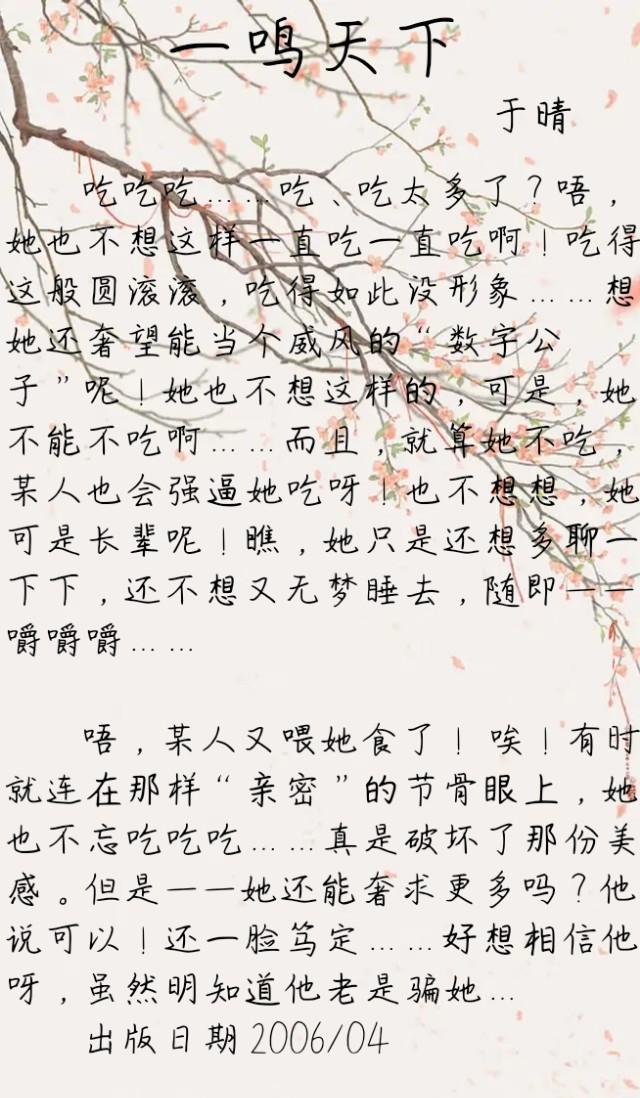 一鸣天下
于晴
吃吃吃……吃、吃太多了？唔，
她也不想这样一直吃一直吃啊！吃得
这般圆滚滚，吃得如此没形象……想
她还奢望能当个威风的“数字公
子”呢！她也不想这样的，可是，她
不能不吃啊……而且，就算她不吃，
某人也会强逼她吃呀！也不想想，她
可是长辈呢！瞧，她只是还想多聊一
下下，还不想又无梦睡去，随即——
嚼嚼嚼……
唔，某人又喂她食了！唉！有时
就连在那样“亲密”的节骨眼上，她
也不忘吃吃吃……真是破坏了那份美
感。但是——她还能奢求更多吗？他
说可以！还一脸笃定……好想相信他
呀，虽然明知道他老是骗她…
出版日期2006/04